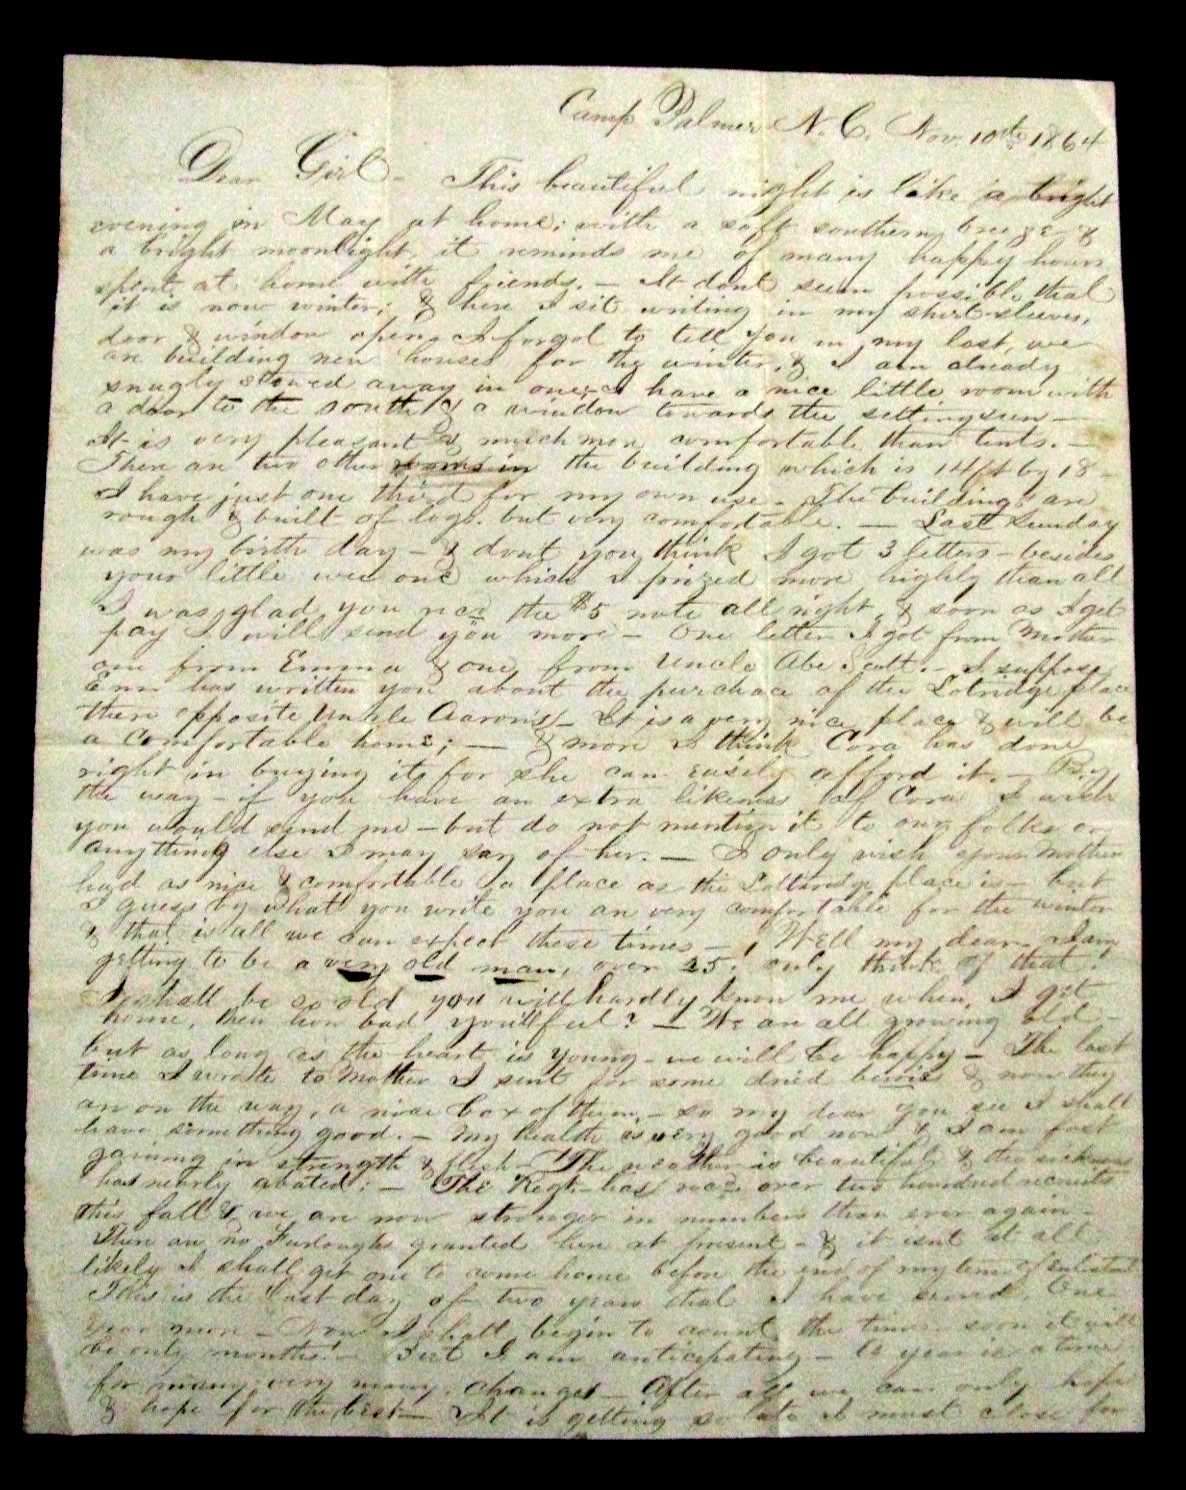 Camp Palmer N. C. Nov. 10th 1864
Dear Girl - This beautiful night is like a bright
evening in May at home; with a soft southern breeze &
a bright moonlight, it reminds me of many happy hours
spent at home with friends. - It dont seem possible that
it is now winter; & here I sit writing in my shirt-sleeves,
door & window open. I forgot to tell you in my last, we
are building new houses for the winter, & I am already
snugly stowed away in one; I have a nice little room with
a door to the south & a window towards the setting sun -
It is very pleasant & much more comfortable than tents. -
There are two other rooms in the building which is 14ft by 18 -
I have just one third for my own use - The buildings are
rough & built of logs. but very comfortable. - Last Sunday
was my birth day - & dont you think I got 3 letters - besides
your little wee one which I prized more highly than all
I was glad you recd the $5 note all right, & soon as I get
pay I will send you more - One letter I got from Mother
one from Emma & one from Uncle Abe Scott. - I suppose
Em has written you about the purchace of the Lotridge place
there opposite Unkle Aaron's - It is a very nice place & will be
a comfortable home; - & more I think Cora has done
right in buying it, for she can easily afford it. - By
the way - if you have an extra likeness of Cora I wish
you would send me - but do not mention it to our folks or
anything else I may say of her. - I only wish your Mother
had as nice & comfortable a place as the Lottridge place is - but
I guess by what you write you are very comfortable for the winter
& that is all we can expect these times - Well my dear I am
getting to be a very old man, over 25! only think of that!
I shall be so old you will hardly know me when I get
home, then how bad you'll feel? - We are all growing old -
but as long as the heart is young - we will be happy - The last
time I wrote to Mother I sent for some dried berries & now they
are on the way, a nice box of them - so my dear you see I shall
have something good. - My health is very good now & I am fast
gaining in strength & flesh - The weather is beautiful & the sickness
has nearly abated; - The Regt. has recd over two hundred recruits
this fall & we are now stronger in numbers than ever again -
There are no Furloughs granted here at present - & it isnt at all
likely I shall get one to come home before the end of my time of enlistment
This is the last day of two years that I have served. One
year more - Now I shall begin to count the time - soon it will
be only months! - But I am anticipating - A year is a time
for many, very many, changes - After all we can only hope
& hope for the best - It is getting so late I must close for